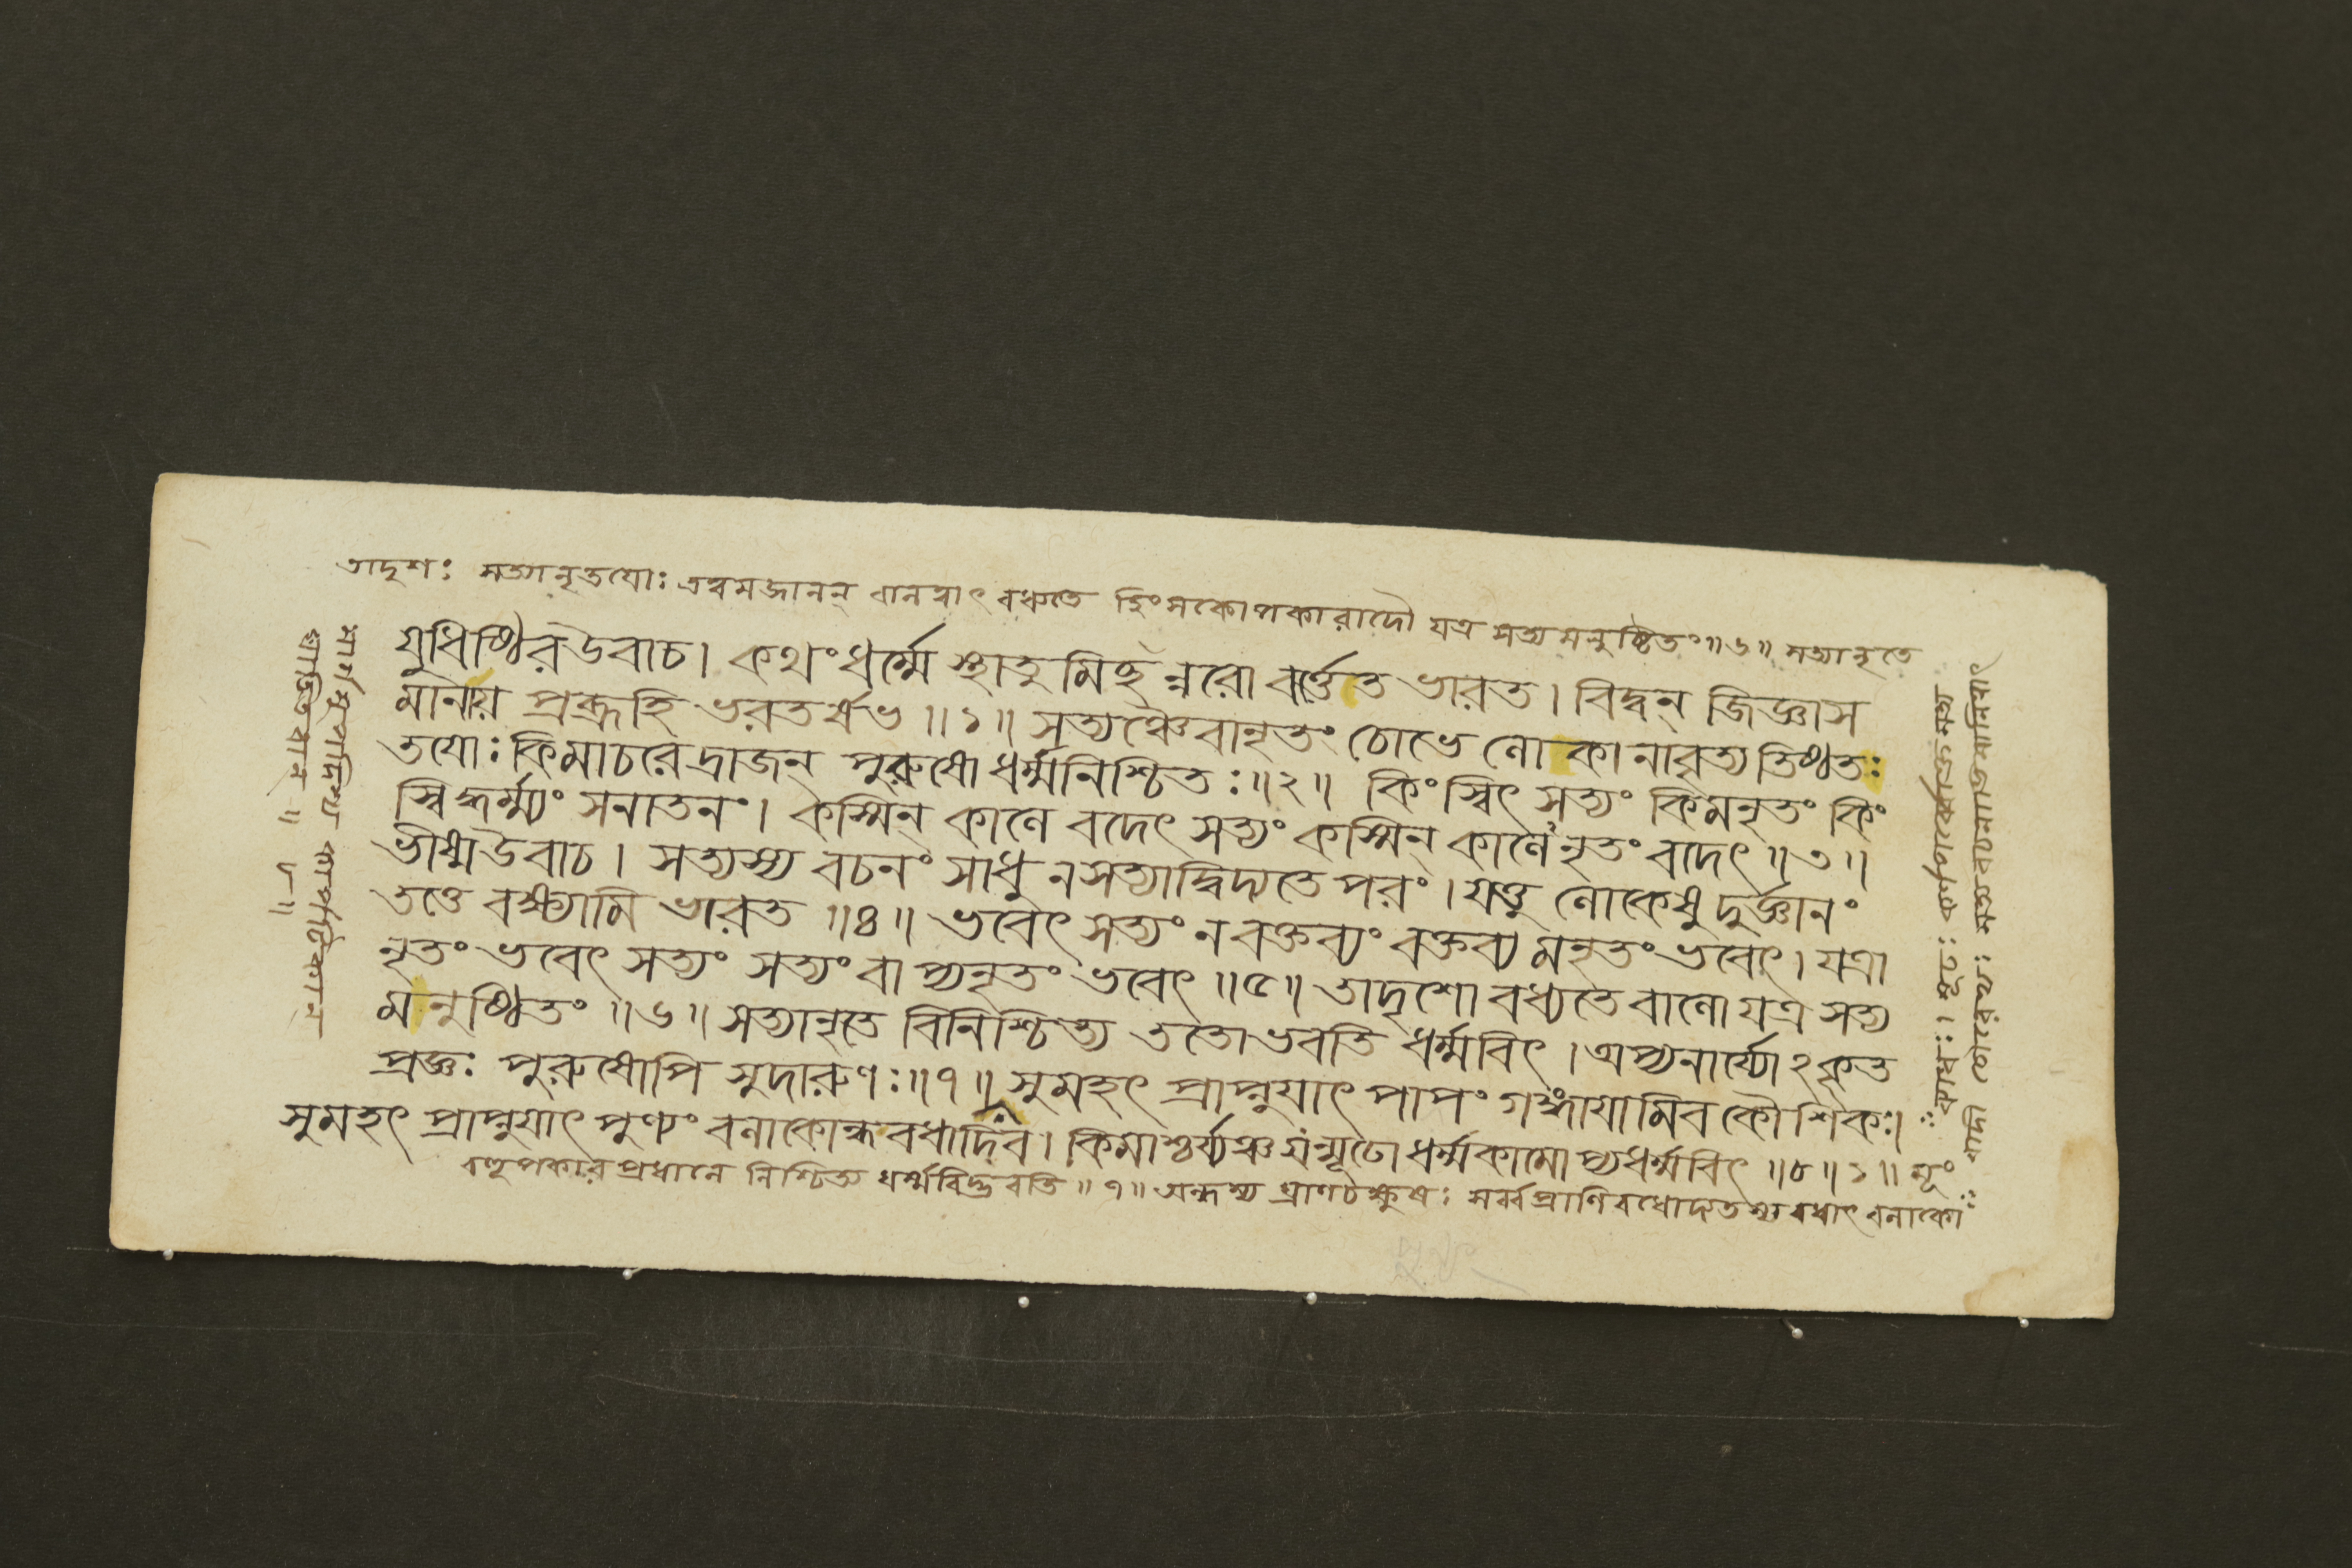 তাদৃশঃ সত্যানৃতযোঃ এবমজানন্ বধ্যতে হিংসকোপকারাদৌ যত্র সত্যমনুষ্ঠিতং॥৬॥ সত্যানৃতে
যুধিষ্ঠিরউবাচ। কথংধর্ম্মে স্থাতুমিহ ন্নরো বর্ত্তেত ভারত। বিদ্বন্ জিজ্ঞাস
মানায় প্রব্রূহি ভরতর্ষভ॥১॥ সত্যঞ্চৈবানৃতং চোভে লোকানাবৃত্য তিষ্ঠতঃ
তযোঃ কিমাচরেদ্রাজন্ পুরুষো ধর্ম্মনিশ্চিতঃ॥২॥ কিংস্বিৎ সত্যং কিমনৃতং কিং
স্বিদ্ধর্ম্ম্যং সনাতনং। কস্মিন্ কালে বদেৎ সত্যং কস্মিন্ কালেনৃতং বদেৎ॥৩॥
ভীষ্মউবাচ। সত্যস্য বচনং সাধু নসত্যাদ্বিদ্যতে পরং। যত্তু লোকেষু দুর্জ্ঞানং
তত্তে বক্ষ্যামি ভারত॥৪॥ ভবেৎ সত্যং নবক্তব্যং বক্তব্যমনৃতং ভবেৎ। যত্রা
নৃতং ভবেৎ সত্যং সত্যং বাপ্যনৃতং ভবেৎ॥৫॥ তাদৃশো বধ্যতে বালো যত্র সত্য
মনুষ্ঠিতং॥৬॥ সত্যানৃতে বিনিশ্চিত্য ততোভবতি ধর্ম্মবিৎ। অপ্যনার্য্যোঽকৃত
প্রজ্ঞঃ পুরুষোপি সুদারুণঃ॥৭॥ সুমহৎ প্রাপ্নুযাৎ পাপং গঙ্গাযামিব কৌশিকঃ।
সুমহৎ প্রাপ্নুযাৎ পুণ্যং বলাকোন্ধবধাদিব। কিমাশ্চর্য্যঞ্চ যন্মূঢো ধর্ম্মকামোপ্যধর্ম্মবিৎ॥৮॥১॥
প্রধানে নিশ্চিত্য ধর্ম্মবিদ্ভবতি॥৭॥ অন্ধস্য ঘ্রাণচক্ষুষঃ সর্ব্বপ্রাণিবধোদ্যতস্য বধাৎ বলাকো